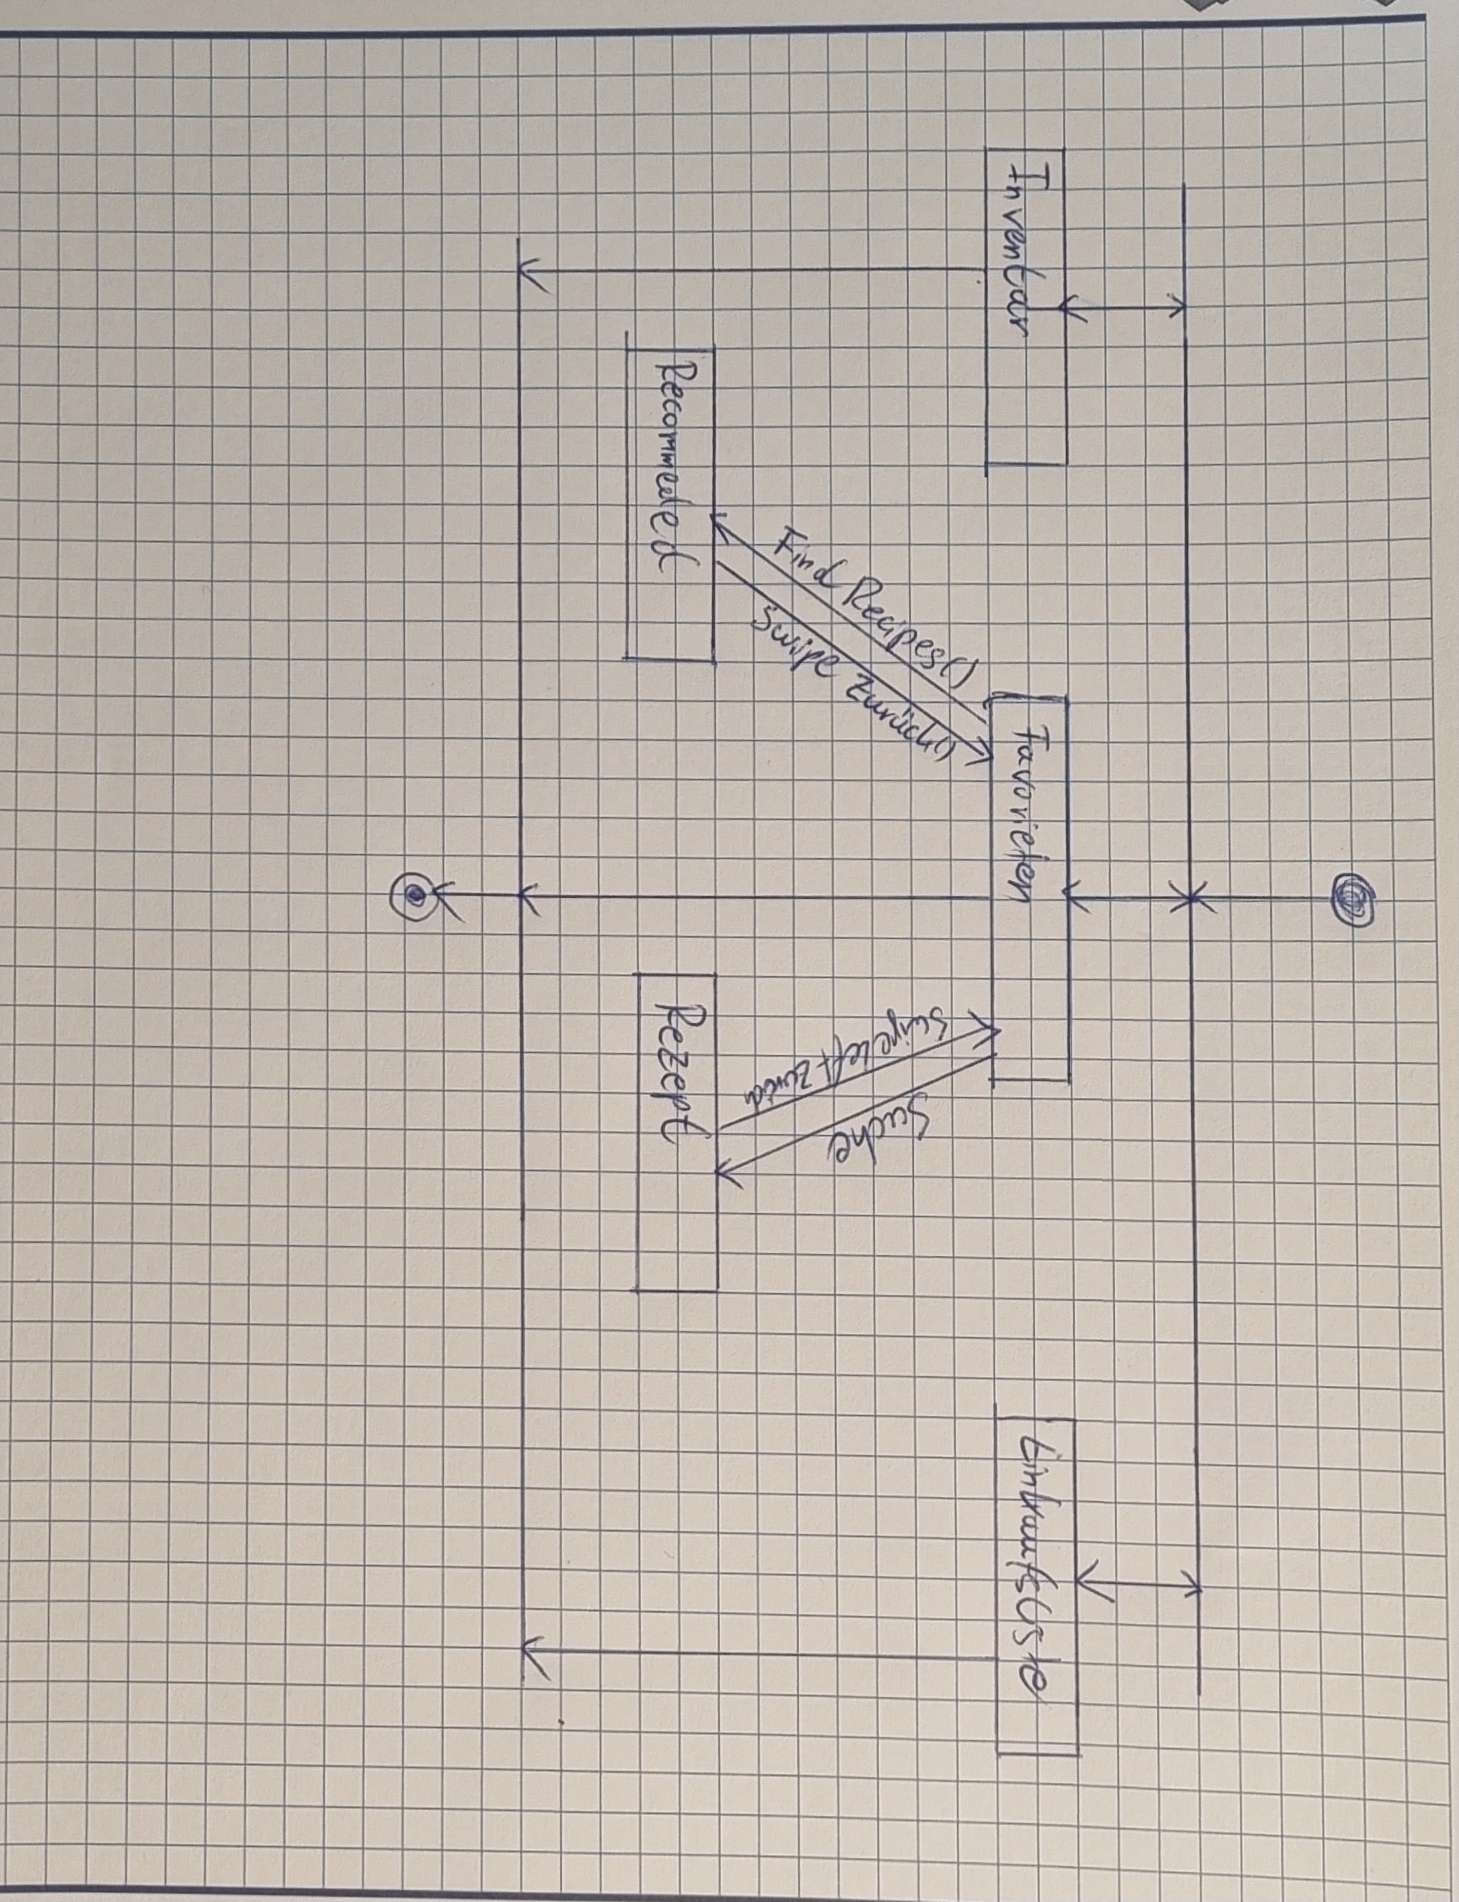 Inventar
Favorieten
Einkaufsliste
Find Recipes()
Swipe Zurück()
Swipe left zurück
Suche
Recommeded
Rezept